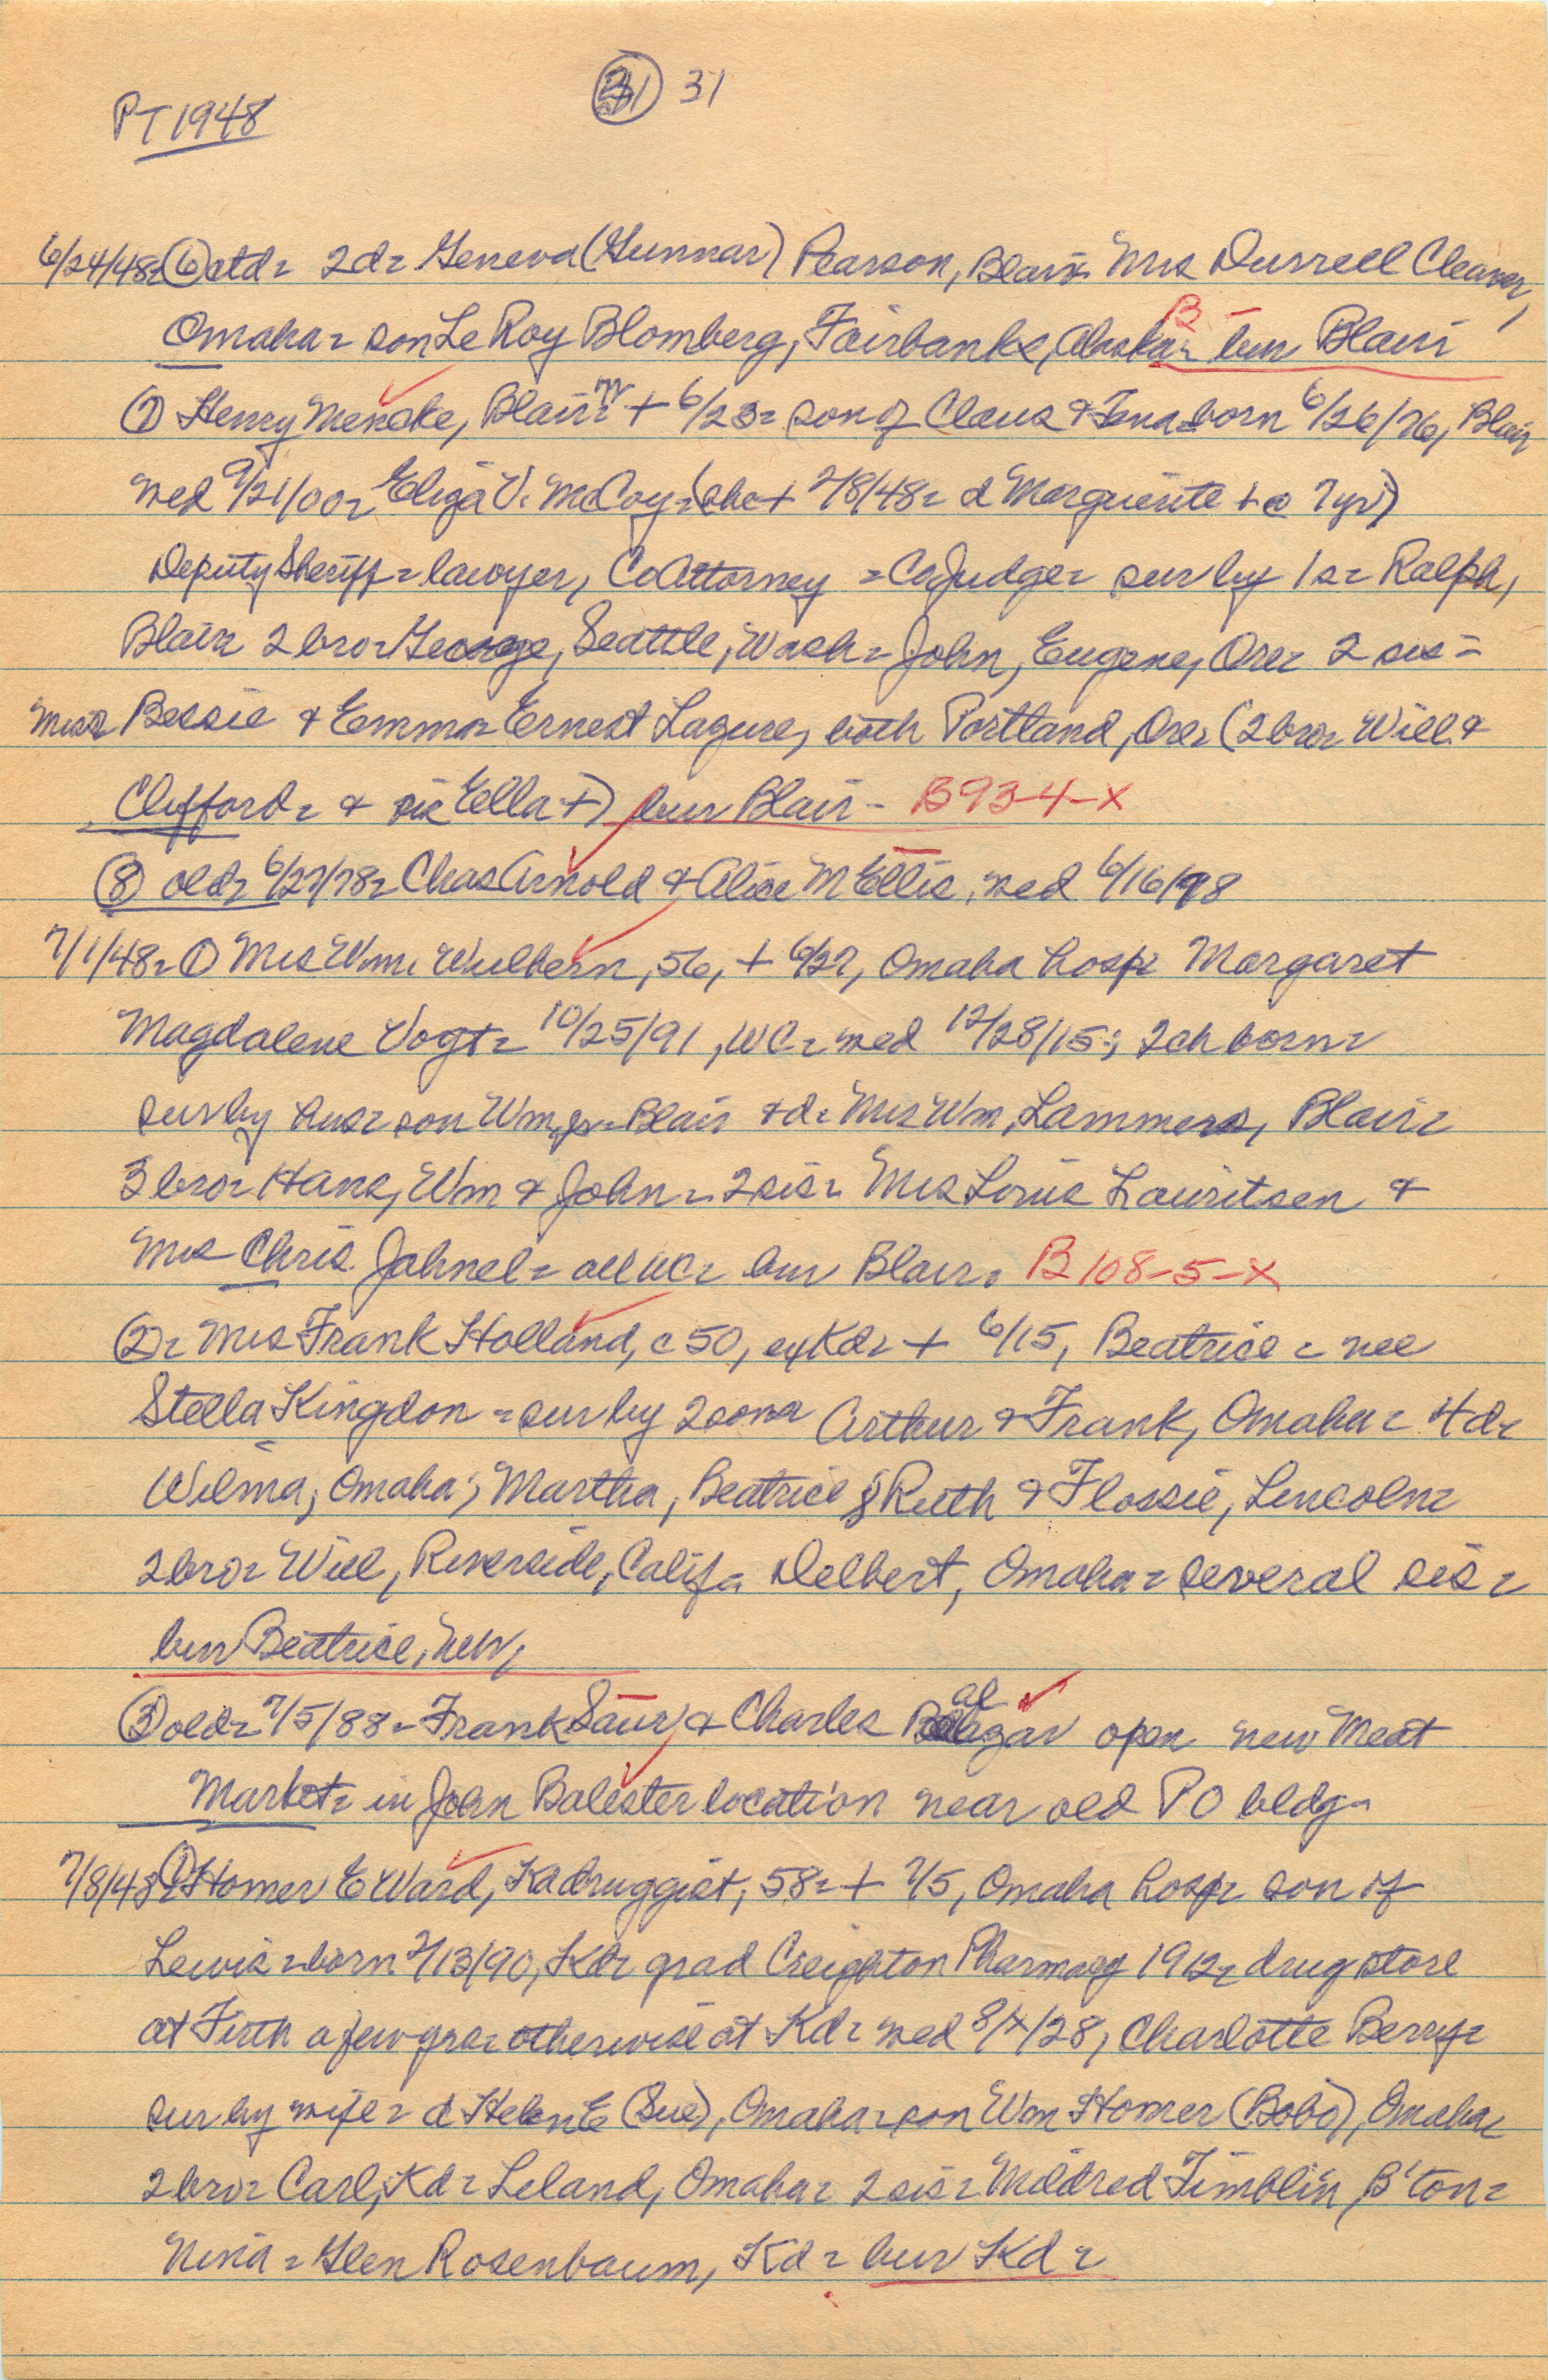 PT 1948
31 31
6/24/48= ⑥ ctd= 2d= Geneva (Gunnar) Pearson, Blair= Mrs Durrell Cleaver,
Omaha= son LeRoy Blomberg, Fairbanks, Alaska= bur Blair
B
⑦ Henry Mencke, Blair= + 6/23= son of Claus & Tena= born 6/26/76, Blair
wed 9/21/00= Eliza V. McCoy= (she + 2/8/48= d Marguerite + @ 7yr)
Deputy Sheriff= lawyer, CoAttorney = CoJudge= sur by 1s= Ralph,
Blair= 2 bro= George, Seattle, Wash= John, Eugene, Ore= 2 sis=
Miss Bessie & Emma= Ernest Lazure, both Portland, Ore= (2 bro= Will &
Clifford= & sis Ella +) bur Blair - B93-4-X
⑧ old= 6/27/78= Chas Arnold & Alice M Ellis, wed 6/16/98
7/1/48= ① Mrs Wm. Wulbern, 56, + 6/27, Omaha hosp= Margaret
Magdalene Vogt= 10/25/91, WC= wed 12/28/15; 2ch born=
sur by hus= son Wm, Jr= Blair & d= Mrs Wm. Lammers, Blair=
3 bro= Hans, Wm & John= 2 sis= Mrs Louis Lauritsen &
Mrs Chris. Jahnel= all WC= bur Blair= B108-5-X
②= Mrs Frank Holland, c50, exKd= + 6/15, Beatrice = nee
Stella Kingdon = sur by 2 sons Arthur & Frank, Omaha= 4d=
Wilma, Omaha; Martha, Beatrice; Ruth & Flossie, Lincoln=
2 bro= Will, Riverside, Calif= Delbert, Omaha= several sis=
bur Beatrice,
③ old= 7/5/88= Frank Saur & Charles Balazar open new Meat
Market= in John Balester location near old PO bldg=
7/8/48= ① Homer E Ward, Kd druggist, 58= + 7/5, Omaha hosp= son of
Lewis= born 2/13/90, Kd= grad Creighton Pharmacy 1912= drug store
at Firth a few yrs= otherwise at Kd= wed 8/x/28, Charlotte Berry=
sur by wife= d Helen E (Sue), Omaha= son Wm Homer (Bobo), Omaha=
2 bro= Carl, Kd= Leland, Omaha= 2 sis= Mildred Timblin, B'ton=
Nina= Glen Rosenbaum, Kd= bur Kd=